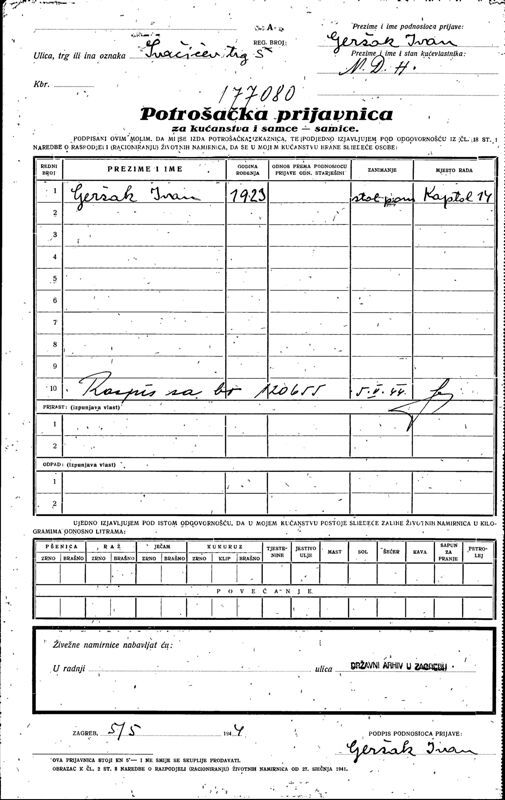 "A"
REG. BROJ:
Prezime i ime podnosioca prijave:
Geržak Ivan
Ulica, trg ili ina oznaka Svačićev trg 5
Prezime i ime i stan kućevlasnika:
N. D. H.
Kbr.
177080
Potrošačka prijavnica
za kućanstva i samce – samice.
POTPISANI OVIM MOLIM, DA MI SE IZDA POTROŠAČKA ISKAZNICA, TE JPODJEDNO IZJAVLJUJEM POD ODGOVORNOŠĆU IZ ČL. 18 ST. 1
NAREDBE O RASPODJELI (RACIONIRANJU) ŽIVOTNIH NAMIRNICA, DA SE U MOJEM KUĆANSTVU HRANE SLIJEDEĆE OSOBE:
REDNI BROJ PREZIME I IME GODINA ROĐENJA ODNOS PREMA PODNOSIOCU PRIJAVE ODN. STARJEŠINI ZANIMANJE MJESTO RADA
1 Geržak Ivan 1923 stol. pom Kaptol 14
2
3
4
5
6
7
8
9
10 Raspis za br 120655 5.V.44.
PRIRAST: (ispunjava vlast)
1
2
OTPAD: (ispunjava vlast)
1
2
UJEDNO IZJAVLJUJEM POD ISTOM ODGOVORNOŠĆU, DA U MOJEM KUĆANSTVU POSTOJE SLIJEDEĆE ZALIHE ŽIVOTNIH NAMIRNICA U KILO-
GRAMIMA ODNOSNO LITRAMA:
PŠENICA RAŽ JEČAM KUKURUZ TJESTE-NINE JESTIVO ULJE MAST SOL ŠEĆER KAVA SAPUN ZA PRANJE PETRO-LEJ
ZRNO BRAŠNO ZRNO BRAŠNO ZRNO BRAŠNO ZRNO KLIP BRAŠNO
POVEĆANJE
Živežne namirnice nabavljat ću:
U radnji ulica DRŽAVNI ARHIV U ZAGREBU
ZAGREB, 5/5 1944
POTPIS PODNOSIOCA PRIJAVE:
Geržak Ivan
OVA PRIJAVNICA STOJI DN 5'— I NE SMIJE SE SKUPLJE PRODAVATI.
OBRAZAC K ČL. 2 ST. 8 NAREDBE O RASPODJELI (RACIONIRANJU) ŽIVOTNIH NAMIRNICA OD 27. SIJEČNJA 1941.